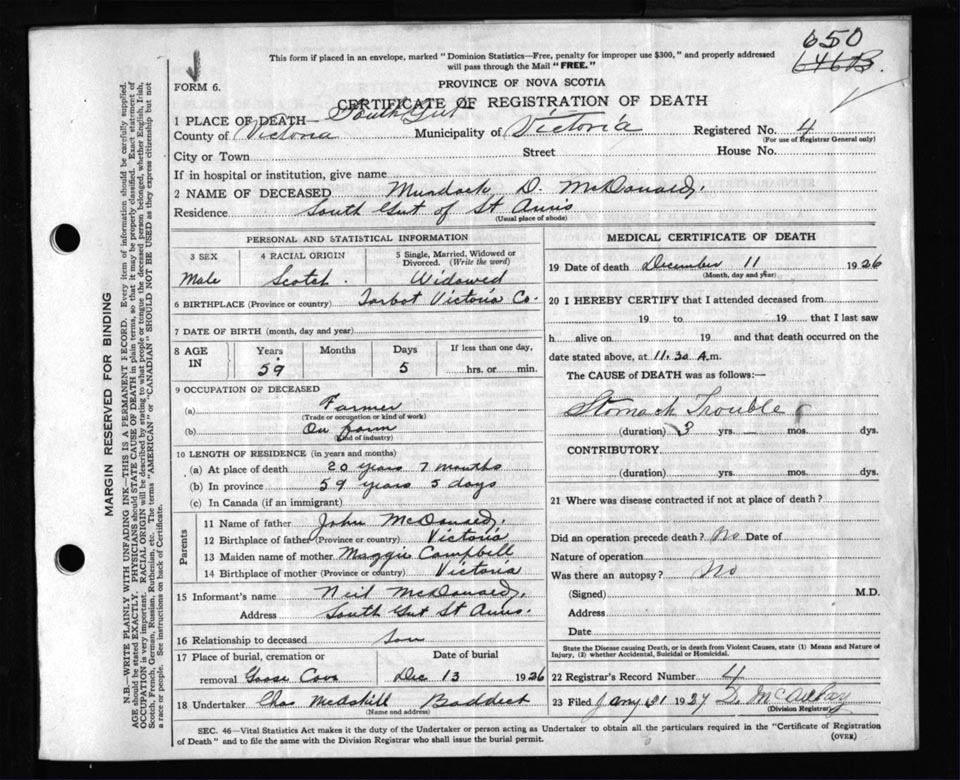 650
646B.
This form if placed in an envelope, marked "Dominion Statistics—Free, penalty for improper use $300," and properly addressed
will pass through the Mail "FREE."
FORM 6.
PROVINCE OF NOVA SCOTIA
CERTIFICATE OF REGISTRATION OF DEATH
1 PLACE OF DEATH— South Gut
County of Victoria Municipality of Victoria Registered No. 4
(For use of Registrar General only)
City or Town Street House No.
If in hospital or institution, give name
2 NAME OF DECEASED Murdock D. McDonald,
Residence South Gut of St Anns
(Usual place of abode)
PERSONAL AND STATISTICAL INFORMATION
3 SEX 4 RACIAL ORIGIN 5 Single, Married, Widowed or
Divorced. (Write the word)
Male Scotch. Widowed
6 BIRTHPLACE (Province or country) Tarbot Victoria Co.
7 DATE OF BIRTH (month, day and year)
8 AGE IN Years Months Days If less than one day,
59 5 hrs. or min.
9 OCCUPATION OF DECEASED
(a) Farmer
(Trade or occupation or kind of work)
(b) On farm
(Kind of industry)
10 LENGTH OF RESIDENCE (in years and months)
(a) At place of death 20 years 7 months
(b) In province 59 years 5 days
(c) In Canada (if an immigrant)
Parents
11 Name of father John McDonald,
12 Birthplace of father (Province or country) Victoria
13 Maiden name of mother Maggie Campbell
14 Birthplace of mother (Province or country) Victoria
15 Informant's name Neil McDonald,
Address South Gut St Anns.
16 Relationship to deceased Son
17 Place of burial, cremation or Date of burial
removal Goose Cove Dec 13 1926
18 Undertaker Chas McAskill Baddeck
(Name and address)
MEDICAL CERTIFICATE OF DEATH
19 Date of death December 11 1926
(Month, day and year)
20 I HEREBY CERTIFY that I attended deceased from
19 to 19 that I last saw
h alive on 19 and that death occurred on the
date stated above, at 11.30 A.m.
The CAUSE of DEATH was as follows:—
Stomach Trouble
(duration) 3 yrs. — mos. dys.
CONTRIBUTORY
(duration) yrs. mos. dys.
21 Where was disease contracted if not at place of death?
Did an operation precede death? No Date of
Nature of operation
Was there an autopsy? No
(Signed) M.D.
Address
Date
State the Disease causing Death, or in death from Violent Causes, state (1) Means and Nature of
Injury, (2) whether Accidental, Suicidal or Homicidal.
22 Registrar's Record Number 4
23 Filed Jany 31 1927 D. McAulay
(Division Registrar)
SEC. 46—Vital Statistics Act makes it the duty of the Undertaker or person acting as Undertaker to obtain all the particulars required in the "Certificate of Registration
of Death" and to file the same with the Division Registrar who shall issue the burial permit.
(OVER)
MARGIN RESERVED FOR BINDING
N.B.—WRITE PLAINLY WITH UNFADING INK—THIS IS A PERMANENT RECORD. Every item of information should be carefully supplied.
AGE should be stated EXACTLY. PHYSICIANS should STATE CAUSE OF DEATH in plain terms, so that it may be properly classified. Exact statement of
OCCUPATION is very important. RACIAL ORIGIN will be described by stating to what people or tongue the deceased person belonged, whether English, Irish,
Scotch, French, German, Russian, Ruthenian, etc. The terms "AMERICAN" or "CANADIAN" SHOULD NOT BE USED as they express citizenship but not
a race or people. See instructions on back of Certificate.